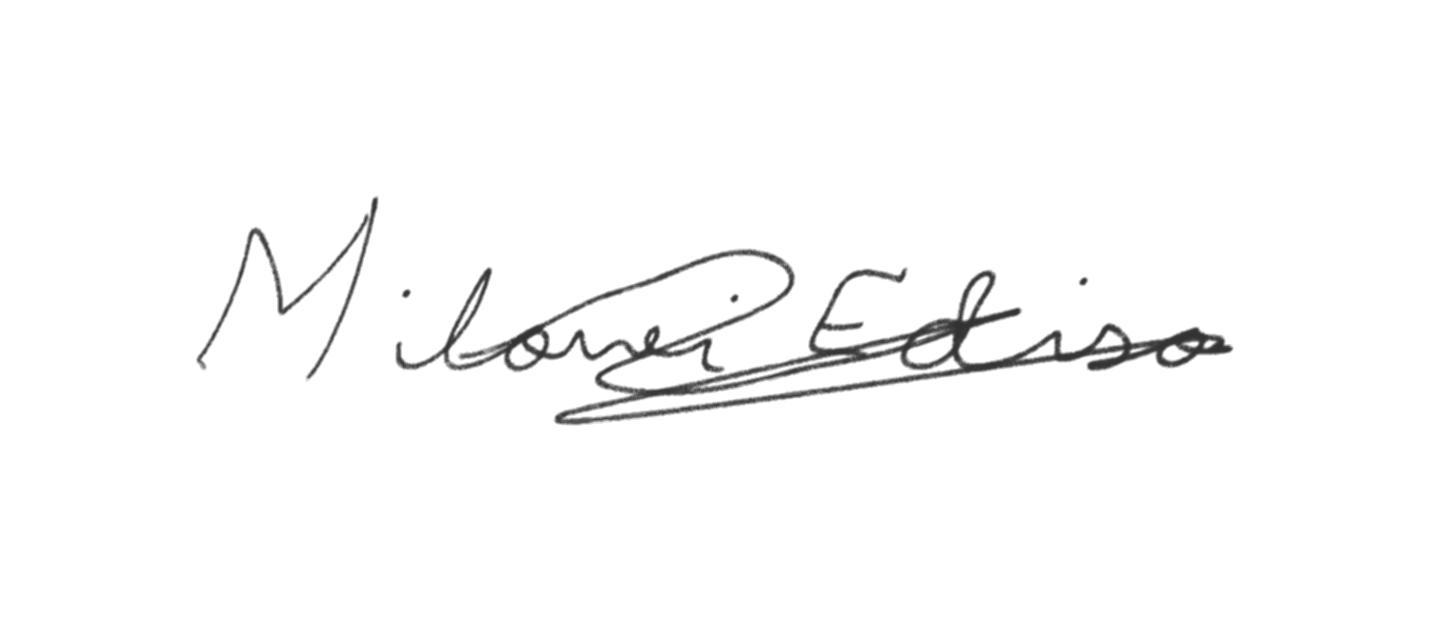 Milonei Ediso